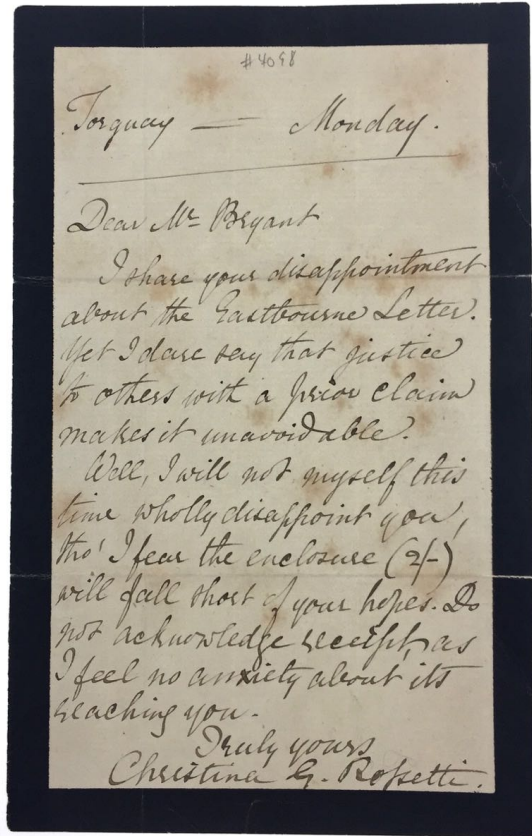 #4098
Torquay — Monday.
Dear Mr. Bryant
I share your disappointment
about the Eastbourne Letter.
Yet I dare say that justice
to others with a prior claim
makes it unavoidable.
Well, I will not myself this
time wholly disappoint you,
tho' I fear the enclosure (2/-)
will fall short of your hopes. Do
not acknowledge receipt, as
I feel no anxiety about its
reaching you.
Truly yours
Christina G. Rossetti.